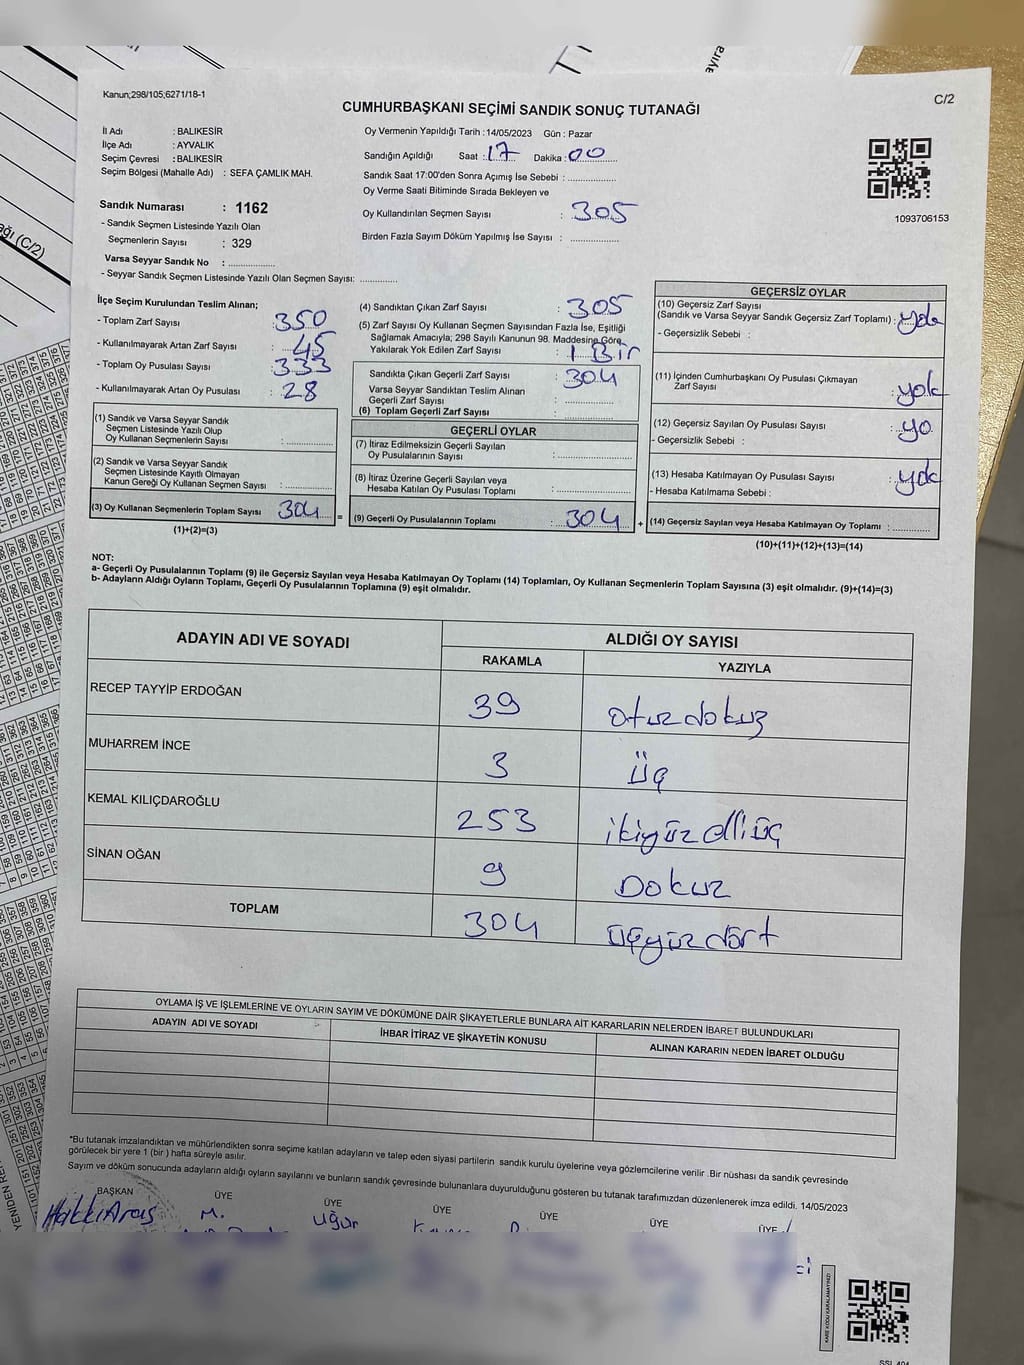 Kanun;298/105;6271/18-1
C/2
CUMHURBAŞKANI SEÇİMİ SANDIK SONUÇ TUTANAĞI
İl Adı : BALIKESİR
İlçe Adı : AYVALIK
Seçim Çevresi : BALIKESİR
Seçim Bölgesi (Mahalle Adı) : SEFA ÇAMLIK MAH.
Sandık Numarası : 1162
- Sandık Seçmen Listesinde Yazılı Olan
Seçmenlerin Sayısı : 329
Varsa Seyyar Sandık No : ................
- Seyyar Sandık Seçmen Listesinde Yazılı Olan Seçmen Sayısı: .............
Oy Vermenin Yapıldığı Tarih : 14/05/2023 Gün : Pazar
Sandığın Açıldığı Saat : 17 Dakika : 00
Sandık Saat 17:00'den Sonra Açımış İse Sebebi : ................
Oy Verme Saati Bitiminde Sırada Bekleyen ve
Oy Kullandırılan Seçmen Sayısı : 305
Birden Fazla Sayım Döküm Yapılmış İse Sayısı : ................
1093706153
İlçe Seçim Kurulundan Teslim Alınan;
- Toplam Zarf Sayısı 350
- Kullanılmayarak Artan Zarf Sayısı : 45
- Toplam Oy Pusulası Sayısı : 333
- Kullanılmayarak Artan Oy Pusulası : 28
(1) Sandık ve Varsa Seyyar Sandık
Seçmen Listesinde Yazılı Olup
Oy Kullanan Seçmenlerin Sayısı : ................
(2) Sandık ve Varsa Seyyar Sandık
Seçmen Listesinde Kayıtlı Olmayan
Kanun Gereği Oy Kullanan Seçmen Sayısı : ................
(3) Oy Kullanan Seçmenlerin Toplam Sayısı 304
(1)+(2)=(3)
=
(4) Sandıktan Çıkan Zarf Sayısı : 305
(5) Zarf Sayısı Oy Kullanan Seçmen Sayısından Fazla İse, Eşitliği
Sağlamak Amacıyla; 298 Sayılı Kanunun 98. Maddesine Göre
Yakılarak Yok Edilen Zarf Sayısı : 1 Bir
Sandıkta Çıkan Geçerli Zarf Sayısı : 304
Varsa Seyyar Sandıktan Teslim Alınan
Geçerli Zarf Sayısı : ................
(6) Toplam Geçerli Zarf Sayısı : ................
GEÇERLİ OYLAR
(7) İtiraz Edilmeksizin Geçerli Sayılan
Oy Pusulalarının Sayısı : ................
(8) İtiraz Üzerine Geçerli Sayılan veya
Hesaba Katılan Oy Pusulası Toplamı : ................
(9) Geçerli Oy Pusulalarının Toplamı : 304
+
GEÇERSİZ OYLAR
(10) Geçersiz Zarf Sayısı
(Sandık ve Varsa Seyyar Sandık Geçersiz Zarf Toplamı) : yok
- Geçersizlik Sebebi :
(11) İçinden Cumhurbaşkanı Oy Pusulası Çıkmayan
Zarf Sayısı : yok
(12) Geçersiz Sayılan Oy Pusulası Sayısı : yo
- Geçersizlik Sebebi :
(13) Hesaba Katılmayan Oy Pusulası Sayısı : yok
- Hesaba Katılmama Sebebi :
(14) Geçersiz Sayılan veya Hesaba Katılmayan Oy Toplamı : .............
(10)+(11)+(12)+(13)=(14)
NOT:
a- Geçerli Oy Pusulalarının Toplamı (9) ile Geçersiz Sayılan veya Hesaba Katılmayan Oy Toplamı (14) Toplamları, Oy Kullanan Seçmenlerin Toplam Sayısına (3) eşit olmalıdır. (9)+(14)=(3)
b- Adayların Aldığı Oyların Toplamı, Geçerli Oy Pusulalarının Toplamına (9) eşit olmalıdır.
ADAYIN ADI VE SOYADI ALDIĞI OY SAYISI
RAKAMLA YAZIYLA
RECEP TAYYİP ERDOĞAN 39 otuzdokuz
MUHARREM İNCE 3 üç
KEMAL KILIÇDAROĞLU 253 ikiyüzelliüç
SİNAN OĞAN 9 Dokuz
TOPLAM 304 üçyüzdört
OYLAMA İŞ VE İŞLEMLERİNE VE OYLARIN SAYIM VE DÖKÜMÜNE DAİR ŞİKAYETLERLE BUNLARA AİT KARARLARIN NELERDEN İBARET BULUNDUKLARI
ADAYIN ADI VE SOYADI İHBAR İTİRAZ VE ŞİKAYETİN KONUSU ALINAN KARARIN NEDEN İBARET OLDUĞU
*Bu tutanak imzalandıktan ve mühürlendikten sonra seçime katılan adayların ve talep eden siyasi partilerin sandık kurulu üyelerine veya gözlemcilerine verilir .Bir nüshası da sandık çevresinde
görülecek bir yere 1 (bir ) hafta süreyle asılır.
Sayım ve döküm sonucunda adayların aldığı oyların sayılarını ve bunların sandık çevresinde bulunanlara duyurulduğunu gösteren bu tutanak tarafımızdan düzenlenerek imza edildi. 14/05/2023
BAŞKAN ÜYE ÜYE ÜYE ÜYE ÜYE ÜYE
Hakkı Aras M. Uğur
KARE KODU KARALAMAYINIZ!